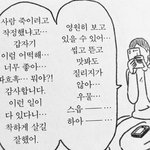 사람 죽이려고
작정했냐고...
갑자기
이럼 어떡해...
너무 좋아...
라흐흑... 뭐야?!
감사합니다.
이런 일이
다 있다니...
착하게 살길
잘했어.
영원히 보고
있을 수 있어...
씹고 뜯고
맛봐도
질리지가
않아...
우물...
스읍
하아